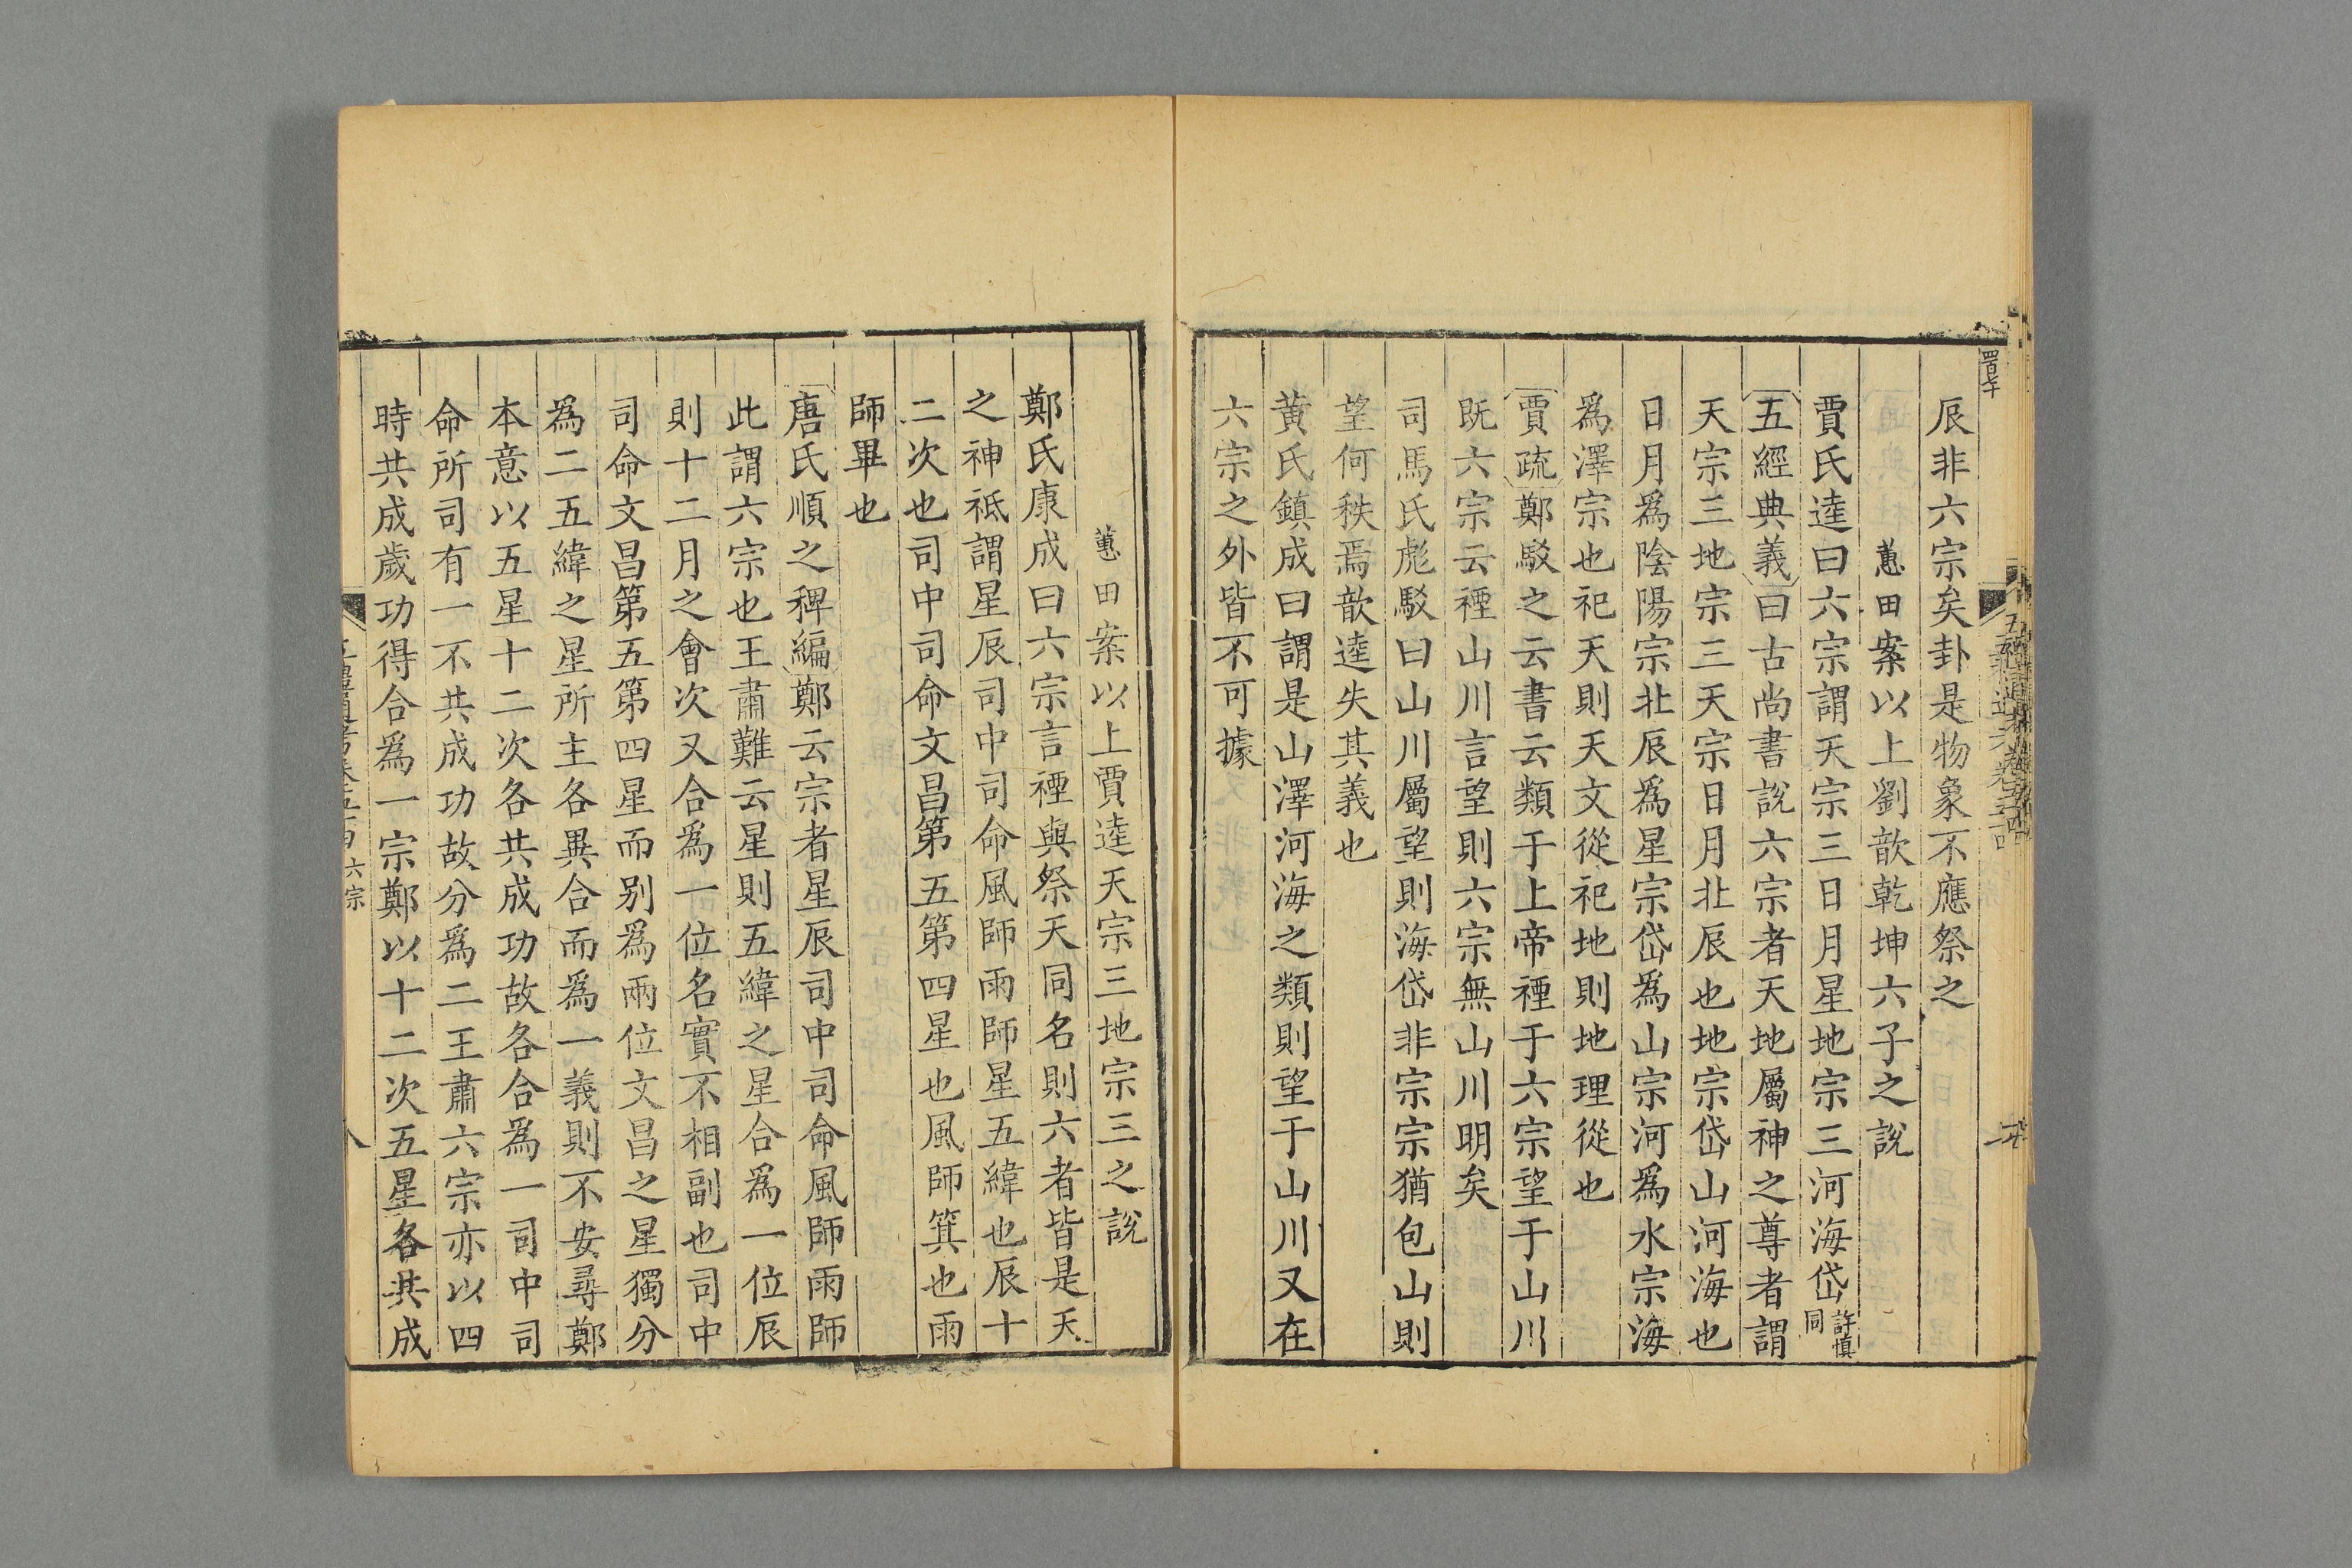 辰非六宗矣卦是物象不應祭之
蕙田案以上劉歆乾坤六子之說
賈氏逵曰六宗謂天宗三日月星地宗三河海岱許慎同
五經典義曰古尚書說六宗者天地屬神之尊者謂
天宗三地宗三天宗日月北辰也地宗岱山河海也
日月為陰陽宗北辰為星宗岱為山宗河為水宗海
為澤宗也祀天則天文從祀地則地理從也
賈疏鄭駁之云書云類于上帝禋于六宗望于山川
既六宗云禋山川言望則六宗無山川明矣
司馬氏彪駁曰山川屬望則海岱非宗宗猶包山則
望何秩焉歆逵失其義也
黃氏鎮成曰謂是山澤河海之類則望于山川又在
六宗之外皆不可據
蕙田案以上賈逵天宗三地宗三之說
鄭氏康成曰六宗言禋與祭天同名則六者皆是天
之神祇謂星辰司中司命風師雨師星五緯也辰十
二次也司中司命文昌第五第四星也風師箕也雨
師畢也
唐氏順之稗編鄭云宗者星辰司中司命風師雨師
此謂六宗也王肅難云星則五緯之星合為一位辰
則十二月之會次又合為一位名實不相副也司中
司命文昌第五第四星而別為兩位文昌之星獨分
為二五緯之星所主各異合而為一義則不安尋鄭
本意以五星十二次各共成功故各合為一司中司
命所司有一不共成功故分為二王肅六宗亦以四
時共成歲功得合為一宗鄭以十二次五星各共成
六宗
八